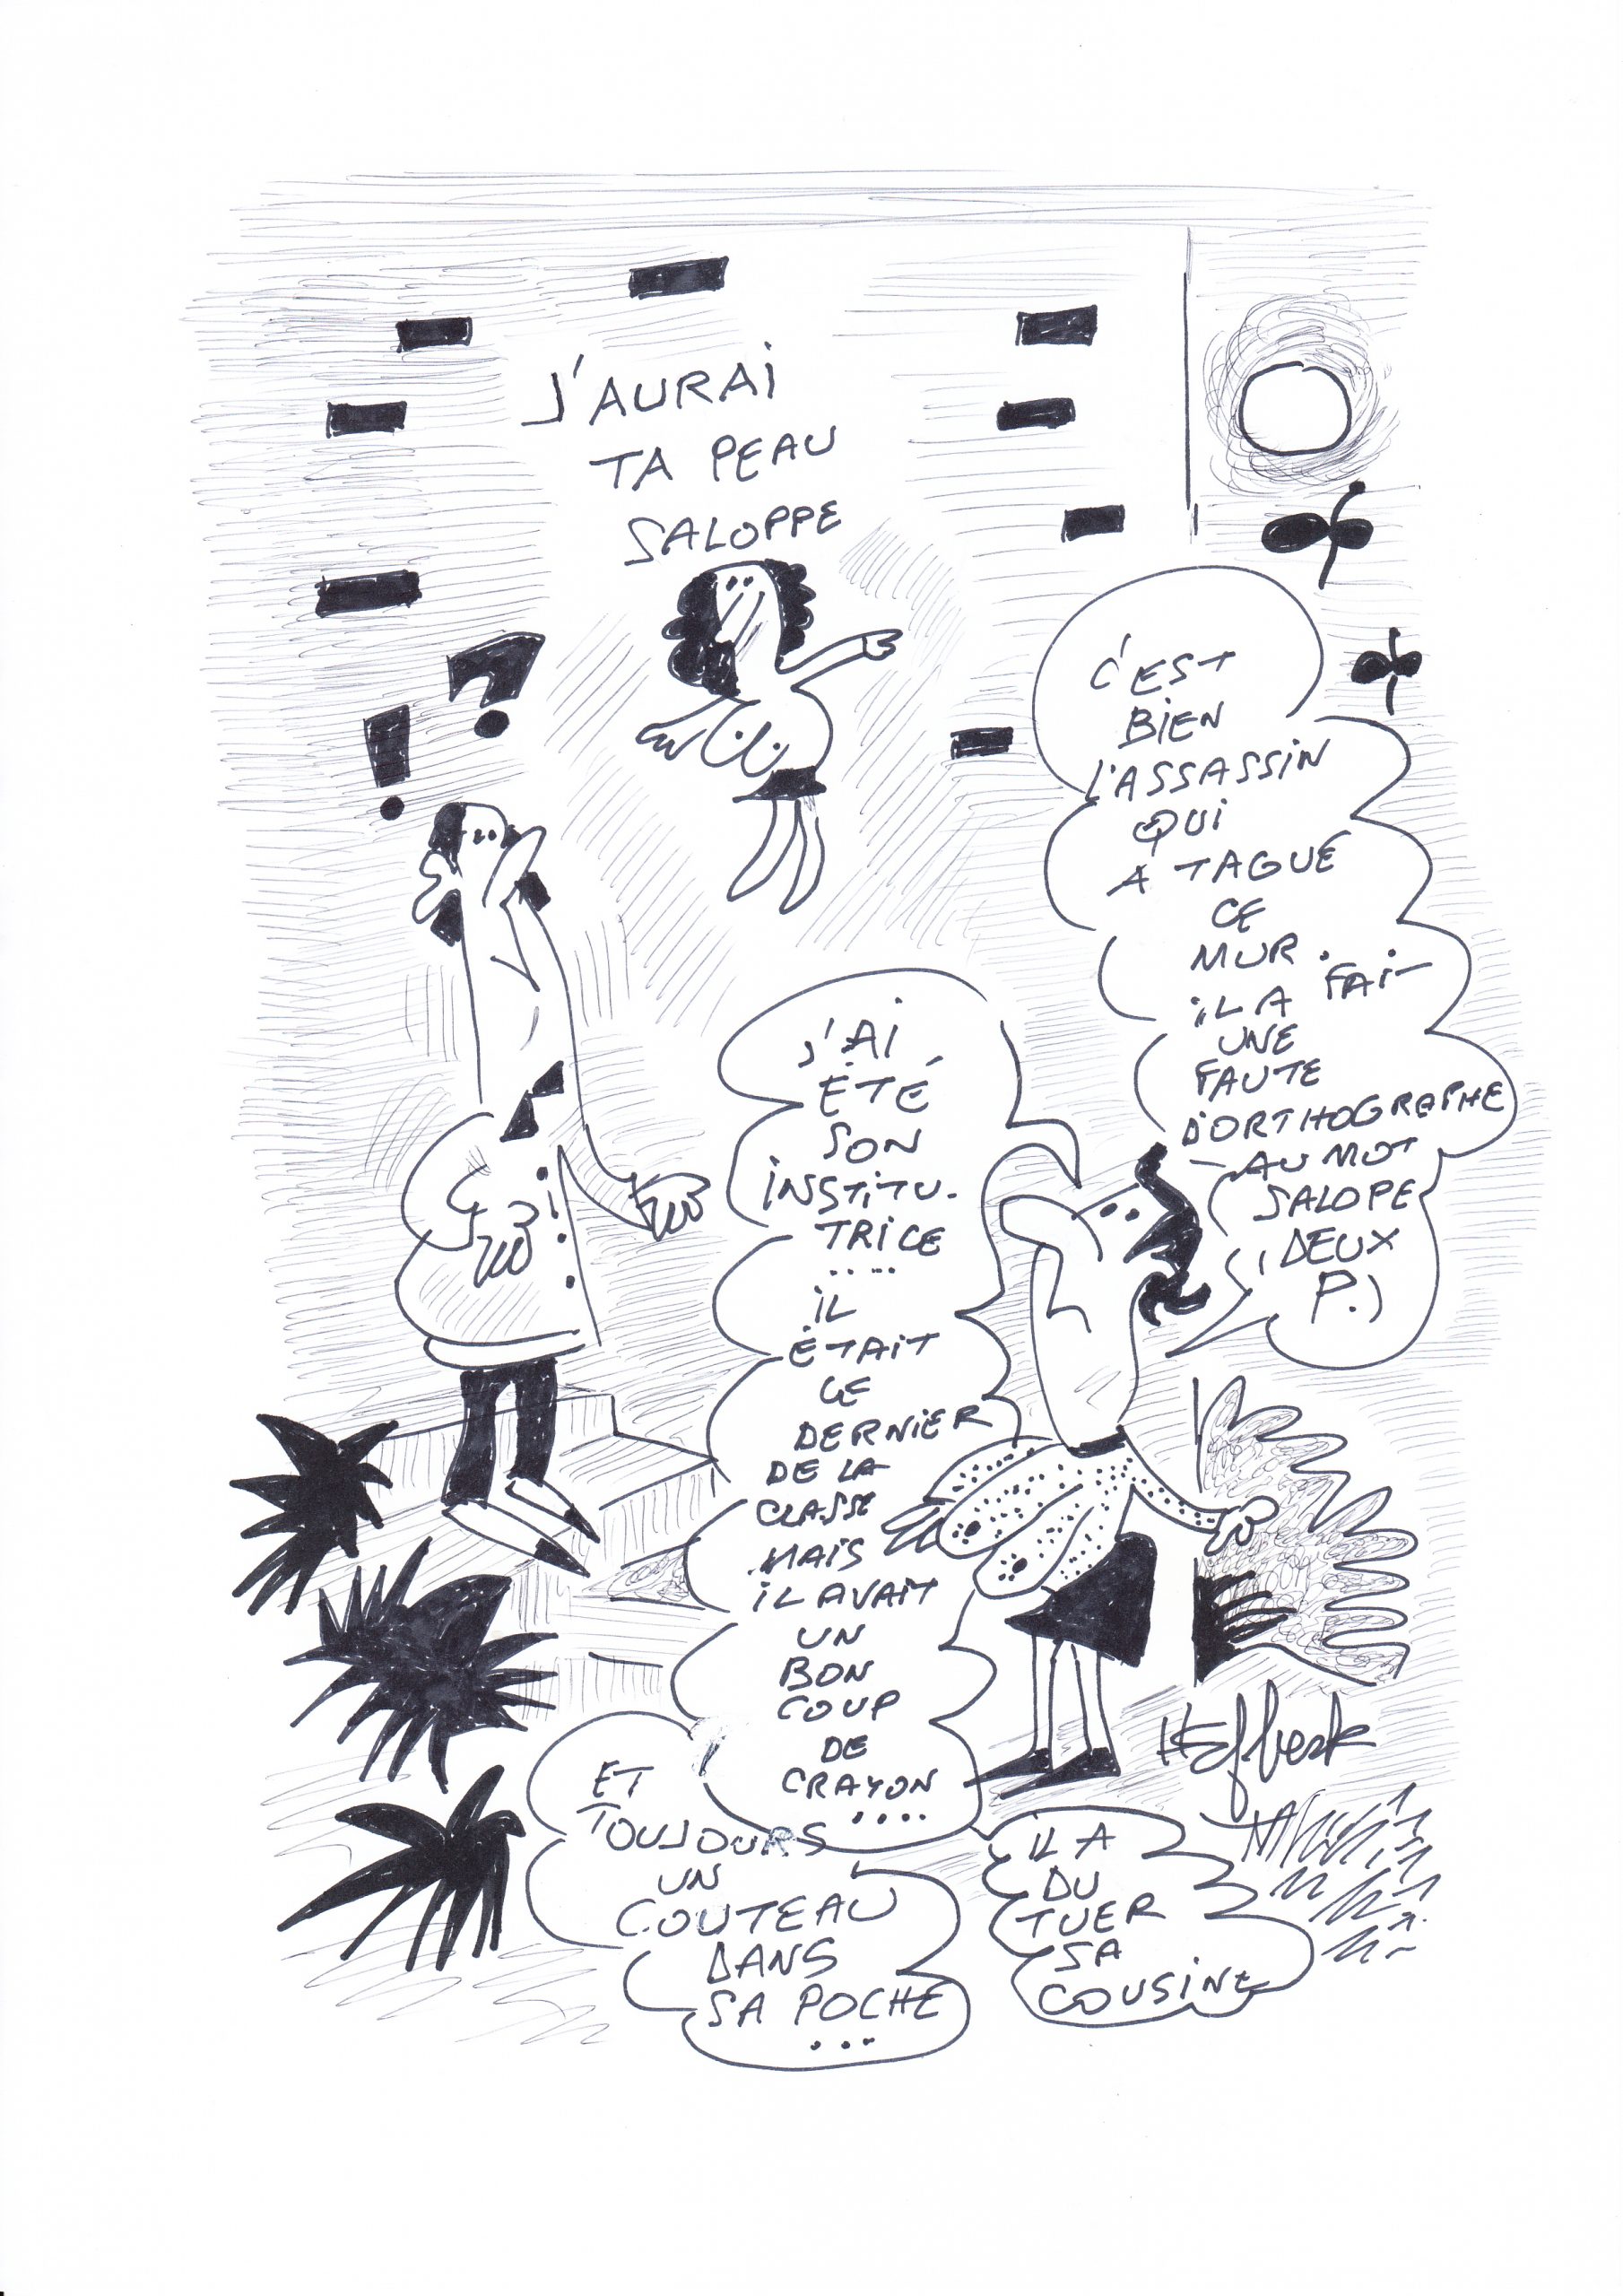 J'AURAI
TA PEAU
SALOPPE
C'EST
BIEN
L'ASSASSIN
QUI
A TAGUÉ
CE
MUR.
IL A FAIT
UNE
FAUTE
D'ORTHOGRAPHE
AU MOT
SALOPE
(DEUX
P.)
J'AI
ÉTÉ
SON
INSTITU-
TRICE
.....
IL
ÉTAIT
LE
DERNIER
DE LA
CLASSE
MAIS
IL AVAIT
UN
BON
COUP
DE
CRAYON
....
ET
TOUJOURS
UN
COUTEAU
DANS
SA POCHE
...
IL A
DU
TUER
SA
COUSINE